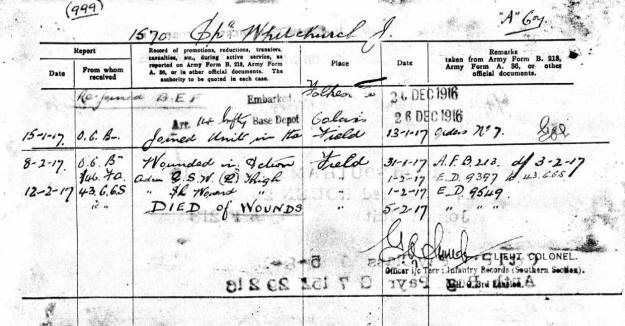 (999)
1570. Cpl Whitchurch J. "A" Coy.
Report
Record of promotions, reductions, transfers, casualties, etc., during active service, as reported on Army Form B. 213, Army Form A. 36, or in other official documents. The authority to be quoted in each case.
Place
Date
Remarks taken from Army Form B. 213, Army Form A. 36, or other official documents.
Date
From whom received
Re-joined B.E.F Embarked Folkes 26 DEC 1916
Arr. Infty Base Depot 26 DEC 1916
15-1-17. O.C. Bn Joined Unit in the Field 13-1-17. Orders No 7.
8-2-17. O.C. Bn Wounded in Action Field 31-1-17 A.F.B. 213. d/ 3-2-17
Fa. adm G.S.W. Thigh E.D. 9397 to 43 CCS
12-2-17 43 CCS " " 1-2-17 E.D. 9549.
" " DIED of WOUNDS " 5-2-17 " " "
LIEUT COLONEL.
Officer i/c Terr: Infantry Records (Southern Section).